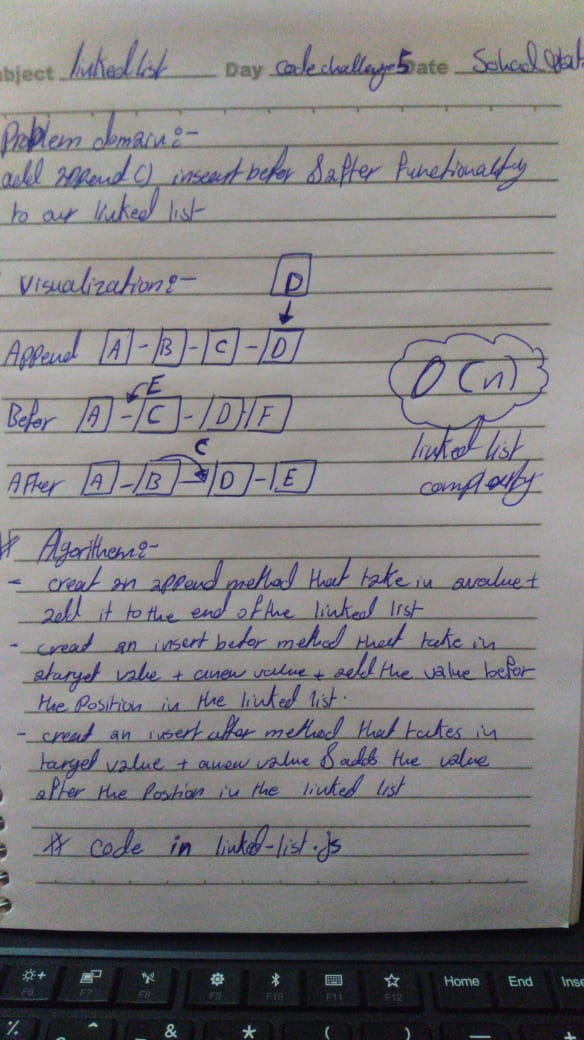 bject linked list Day code challenge 5 Date
Problem domain:-
add append() inseart befor & after functionality
to our linked list
Visualization:-
D
Append A - B - C - D
E
Befor A - C - D F
O(n)
linked list
complexity
C
After A - B - D - E
# Agorithem:-
- creat an append method that take in avalue +
add it to the end of the linked list
- creat an insert befor method that take in
atarget value + anew value + add the value befor
the Position in the linked list.
- creat an insert after method that takes in
target value + anew value & adds the value
after the Position in the linked list
# code in linked-list.js
F6 F7 F8 F9 F10 F11 F12 Home End Inse
% ^ & * ( ) — +